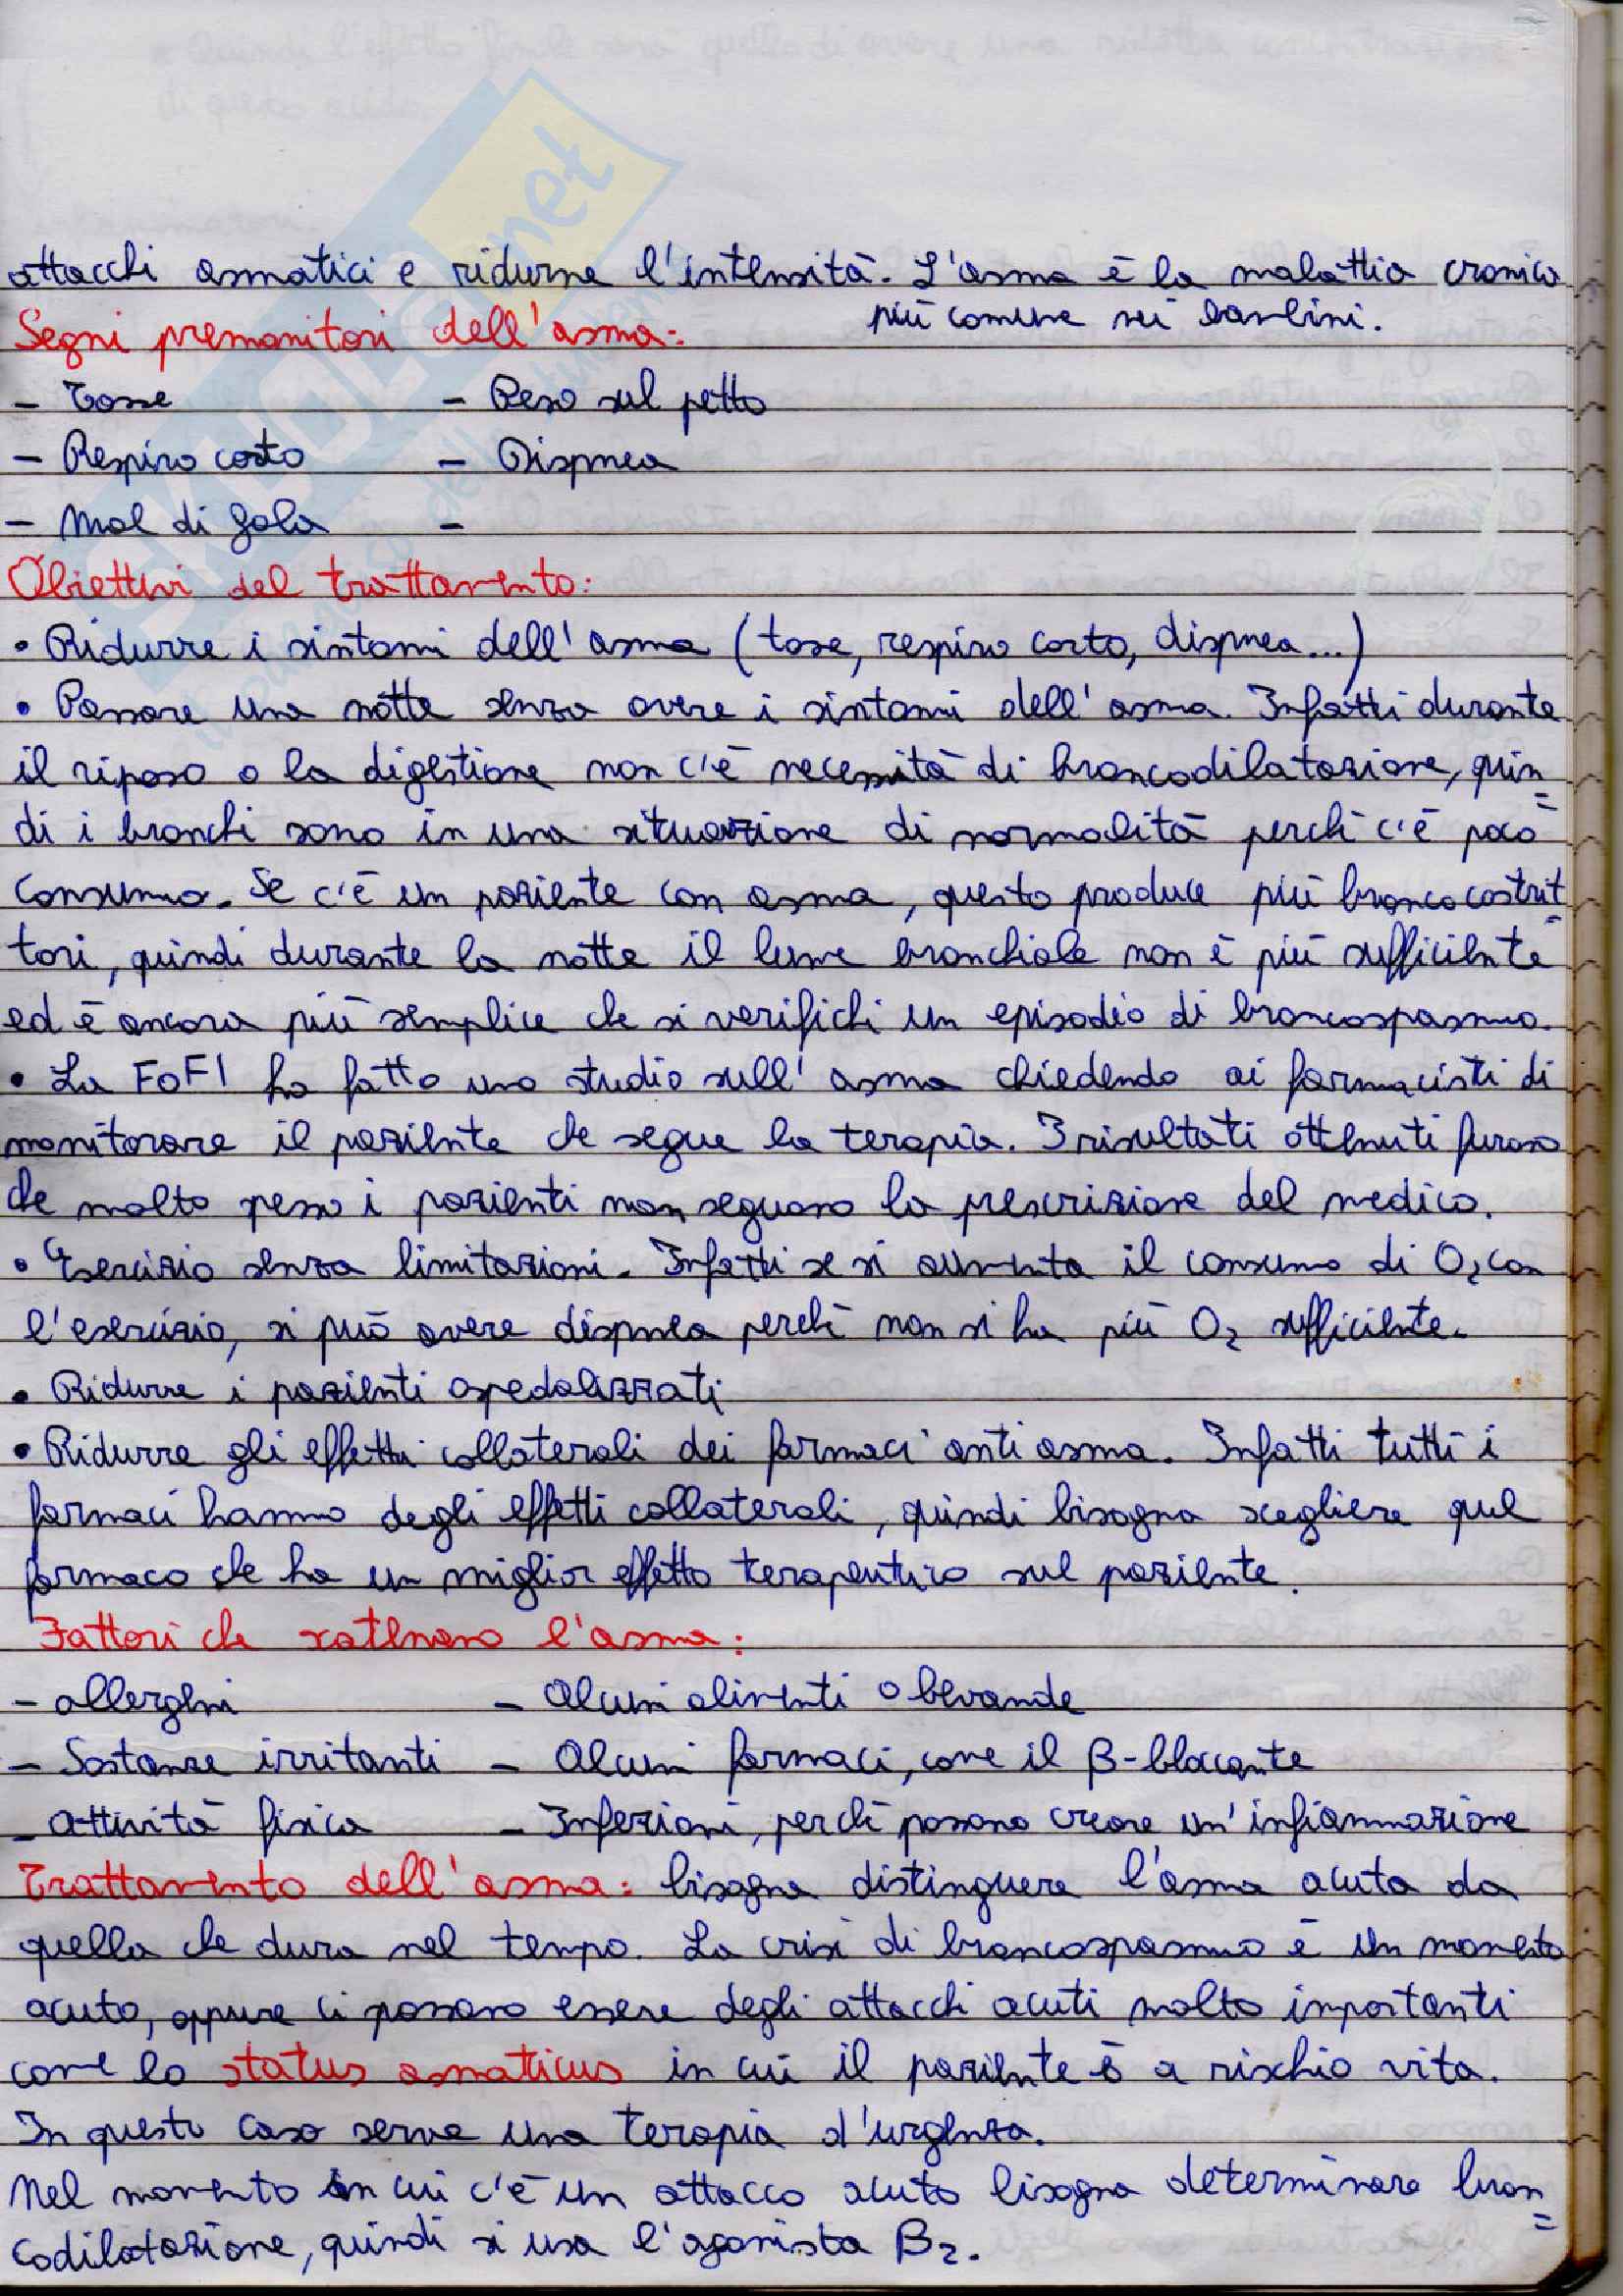 attacchi asmatici e ridurne l'intensità. L'asma è la malattia cronica
più comune nei bambini.
Segni premonitori dell'asma:
- Tosse - Peso sul petto
- Respiro corto - Dispnea
- Mal di gola -
Obiettivi del trattamento:
• Ridurre i sintomi dell'asma (tosse, respiro corto, dispnea...)
• Passare una notte senza avere i sintomi dell'asma. Infatti durante
il riposo o la digestione non c'è necessità di broncodilatazione, quin=
di i bronchi sono in una situazione di normalità perchè c'è poco
consumo. Se c'è un paziente con asma, questo produce più broncocostrit=
tori, quindi durante la notte il lume bronchiale non è più sufficiente
ed è ancora più semplice che si verifichi un episodio di broncospasmo.
• La FOFI ha fatto uno studio sull'asma chiedendo ai farmacisti di
monitorare il paziente che segue la terapia. I risultati ottenuti furono
che molto spesso i pazienti non seguono la prescrizione del medico.
• Esercizio senza limitazioni. Infatti se si aumenta il consumo di O2 con
l'esercizio, si può avere dispnea perchè non si ha più O2 sufficiente.
• Ridurre i pazienti ospedalizzati
• Ridurre gli effetti collaterali dei farmaci antiasma. Infatti tutti i
farmaci hanno degli effetti collaterali, quindi bisogna scegliere quel
farmaco che ha un miglior effetto terapeutico sul paziente.
Fattori che scatenano l'asma:
- Allergeni - Alcuni alimenti o bevande
- Sostanze irritanti - Alcuni farmaci, come il β-bloccante
- Attività fisica - Infezioni, perchè possono creare un'infiammazione
Trattamento dell'asma: bisogna distinguere l'asma acuta da
quella che dura nel tempo. La crisi di broncospasmo è un momento
acuto, oppure ci possono essere degli attacchi acuti molto importanti
come lo status asmaticus in cui il paziente è a rischio vita.
In questo caso serve una terapia d'urgenza.
Nel momento in cui c'è un attacco acuto bisogna determinare bron=
codilatazione, quindi si usa l'agonista β2.